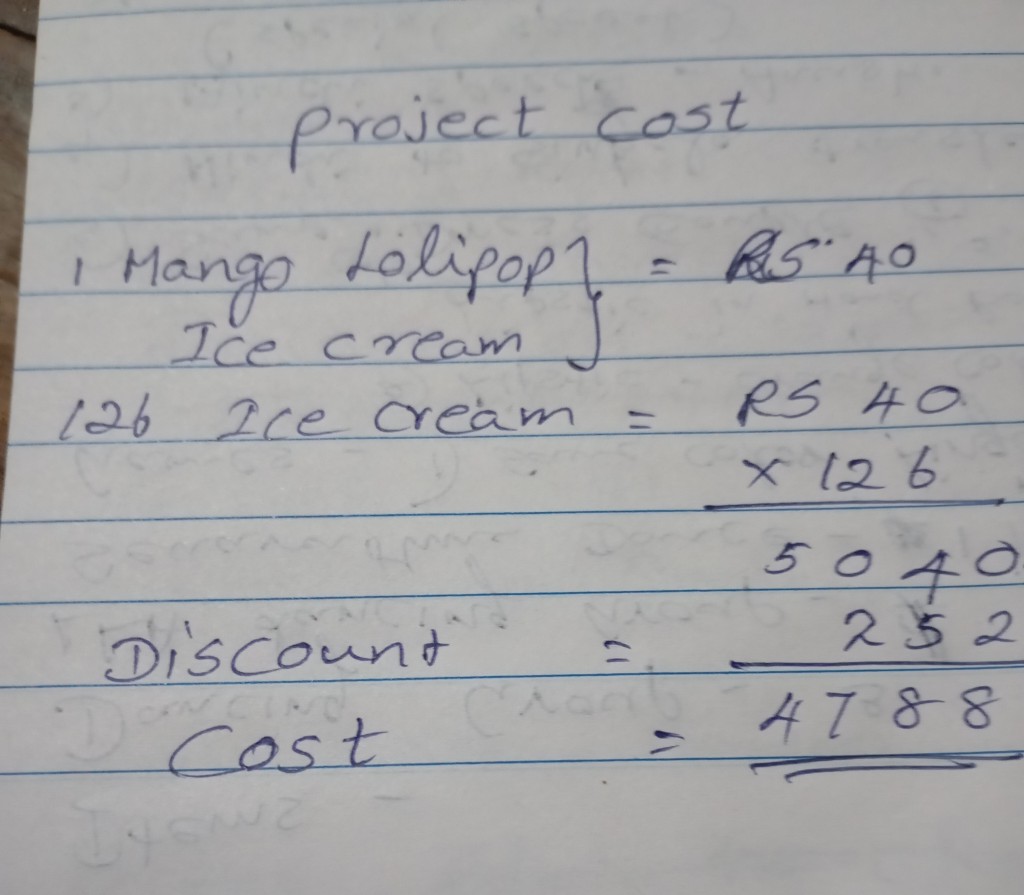 Project Cost
1 Mango Lolipop } = RS 40
Ice cream
126 Ice cream = RS 40
x 126
5040
Discount = 252
Cost = 4788